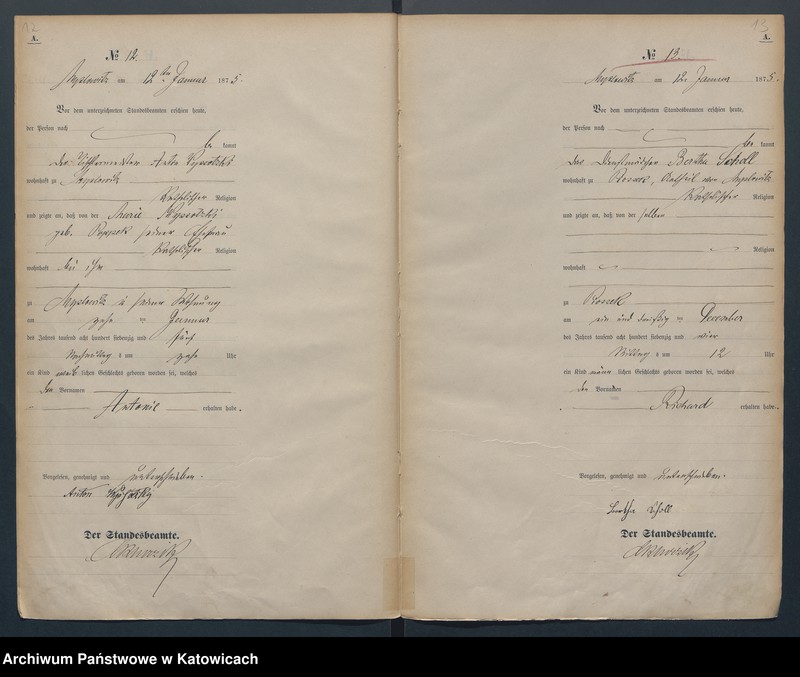 12
A.
№ 12.
Myslowitz am 12ten Januar 1875.
Vor dem unterzeichneten Standesbeamten erschien heute,
der Person nach
be kannt
der Anton
wohnhaft zu Myslowitz
katholischer Religion
und zeigte an, daß von der Marie
geb. seiner Ehefrau
katholischer Religion
wohnhaft bei ihm
zu Myslowitz in seiner Wohnung
am zehn ten Januar
des Jahres tausend acht hundert siebenzig und fünf
Nachmittag s um zehn Uhr
ein Kind weib lichen Geschlechts geboren worden sei, welches
den Vornamen
Antonie erhalten habe.
Vorgelesen, genehmigt und unterschrieben.
Anton
Der Standesbeamte.
13
A.
№ 13.
Myslowitz am 12. Januar 1875.
Vor dem unterzeichneten Standesbeamten erschien heute,
der Person nach
be kannt
das Bertha Scholl
wohnhaft zu von Myslowitz
katholischer Religion
und zeigte an, daß von der selben
Religion
wohnhaft
zu
am ein und dreißig ten December
des Jahres tausend acht hundert siebenzig und vier
Mittag s um 12 Uhr
ein Kind männ lichen Geschlechts geboren worden sei, welches
den Vornamen
Richard erhalten habe.
Vorgelesen, genehmigt und unterschrieben.
Bertha Scholl
Der Standesbeamte.
Archiwum Państwowe w Katowicach